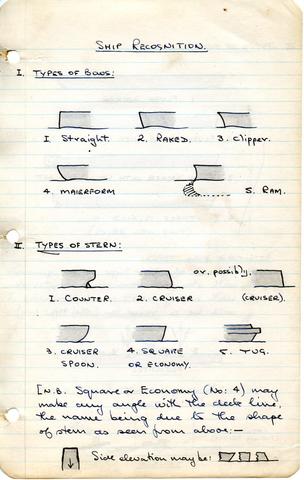 SHIP RECOGNITION.
I. TYPES OF BOWS:
1. Straight. 2. RAKED. 3. Clipper.
4. MAIERFORM 5. RAM.
II. TYPES OF STERN:
or, possibly,
1. COUNTER. 2. CRUISER (CRUISER).
3. CRUISER SPOON. 4. SQUARE OR ECONOMY. 5. TUG.
[N.B. Square or Economy (No: 4) may
make any angle with the deck line,
the name being due to the shape
of stern as seen from above:—
Side elevation may be: